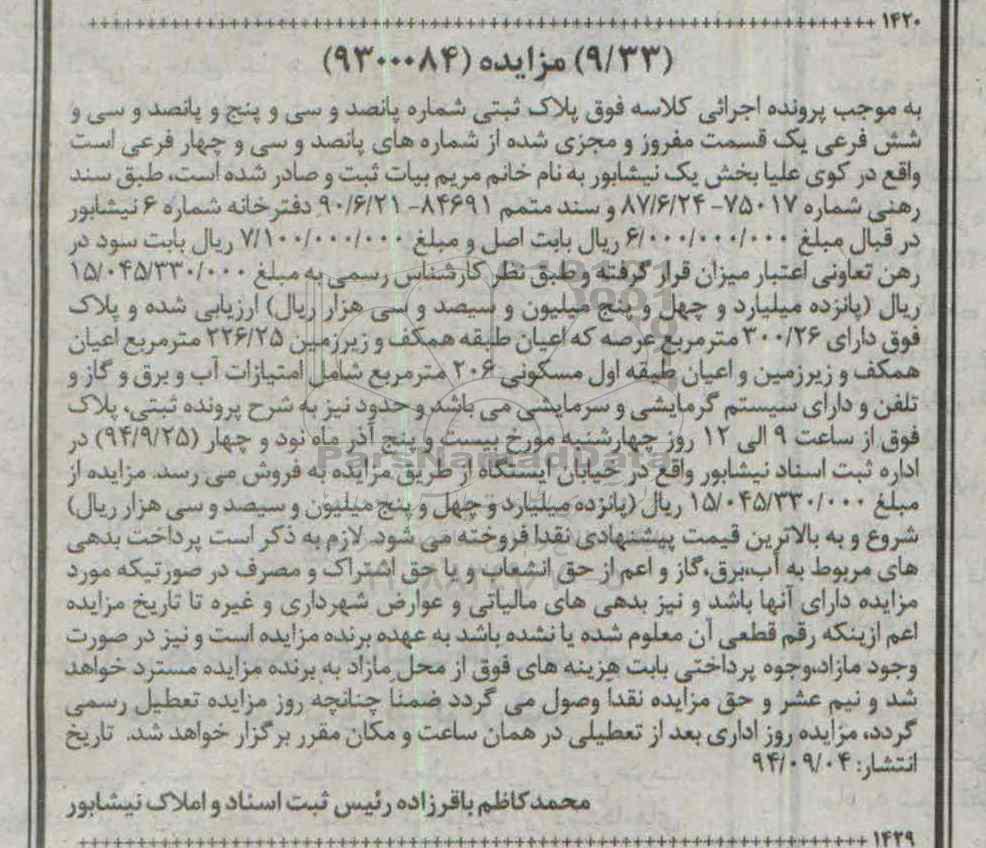 ۱۴۲۰
(۹/۳۳) مزایده (۹۳۰۰۰۸۴)
به موجب پرونده اجرائی کلاسه فوق پلاک ثبتی شماره پانصد و سی و پنج و پانصد و سی و
شش فرعی یک قسمت مفروز و مجزی شده از شماره های پانصد و سی و چهار فرعی است
واقع در کوی علیا بخش یک نیشابور به نام خانم مریم بیات ثبت و صادر شده است، طبق سند
رهنی شماره ۷۵۰۱۷- ۸۷/۶/۲۴ و سند متمم ۸۴۶۹۱- ۹۰/۶/۲۱ دفترخانه شماره ۶ نیشابور
در قبال مبلغ ۶/۰۰۰/۰۰۰/۰۰۰ ریال بابت اصل و مبلغ ۷/۱۰۰/۰۰۰/۰۰۰ ریال بابت سود در
رهن تعاونی اعتبار میزان قرار گرفته و طبق نظر کارشناس رسمی به مبلغ ۱۵/۰۴۵/۳۳۰/۰۰۰
ریال (پانزده میلیارد و چهل و پنج میلیون و سیصد و سی هزار ریال) ارزیابی شده و پلاک
فوق دارای ۳۰۰/۲۶ مترمربع عرصه که اعیان طبقه همکف و زیرزمین ۲۲۶/۲۵ مترمربع اعیان
همکف و زیرزمین و اعیان طبقه اول مسکونی ۲۰۶ مترمربع شامل امتیازات آب و برق و گاز و
تلفن و دارای سیستم گرمایشی و سرمایشی می باشد و حدود نیز به شرح پرونده ثبتی، پلاک
فوق از ساعت ۹ الی ۱۲ روز چهارشنبه مورخ بیست و پنج آذر ماه نود و چهار (۹۴/۹/۲۵) در
اداره ثبت اسناد نیشابور واقع در خیابان ایستگاه از طریق مزایده به فروش می رسد. مزایده از
مبلغ ۱۵/۰۴۵/۳۳۰/۰۰۰ ریال (پانزده میلیارد و چهل و پنج میلیون و سیصد و سی هزار ریال)
شروع و به بالاترین قیمت پیشنهادی نقدا فروخته می شود. لازم به ذکر است پرداخت بدهی
های مربوط به آب،برق،گاز و اعم از حق انشعاب و یا حق اشتراک و مصرف در صورتیکه مورد
مزایده دارای آنها باشد و نیز بدهی های مالیاتی و عوارض شهرداری و غیره تا تاریخ مزایده
اعم ازینکه رقم قطعی آن معلوم شده یا نشده باشد به عهده برنده مزایده است و نیز در صورت
وجود مازاد،وجوه پرداختی بابت هزینه های فوق از محل مازاد به برنده مزایده مسترد خواهد
شد و نیم عشر و حق مزایده نقدا وصول می گردد ضمنا چنانچه روز مزایده تعطیل رسمی
گردد، مزایده روز اداری بعد از تعطیلی در همان ساعت و مکان مقرر برگزار خواهد شد. تاریخ
انتشار: ۹۴/۰۹/۰۴
محمدکاظم باقرزاده رئیس ثبت اسناد و املاک نیشابور
۱۴۲۹
ParsNamadData